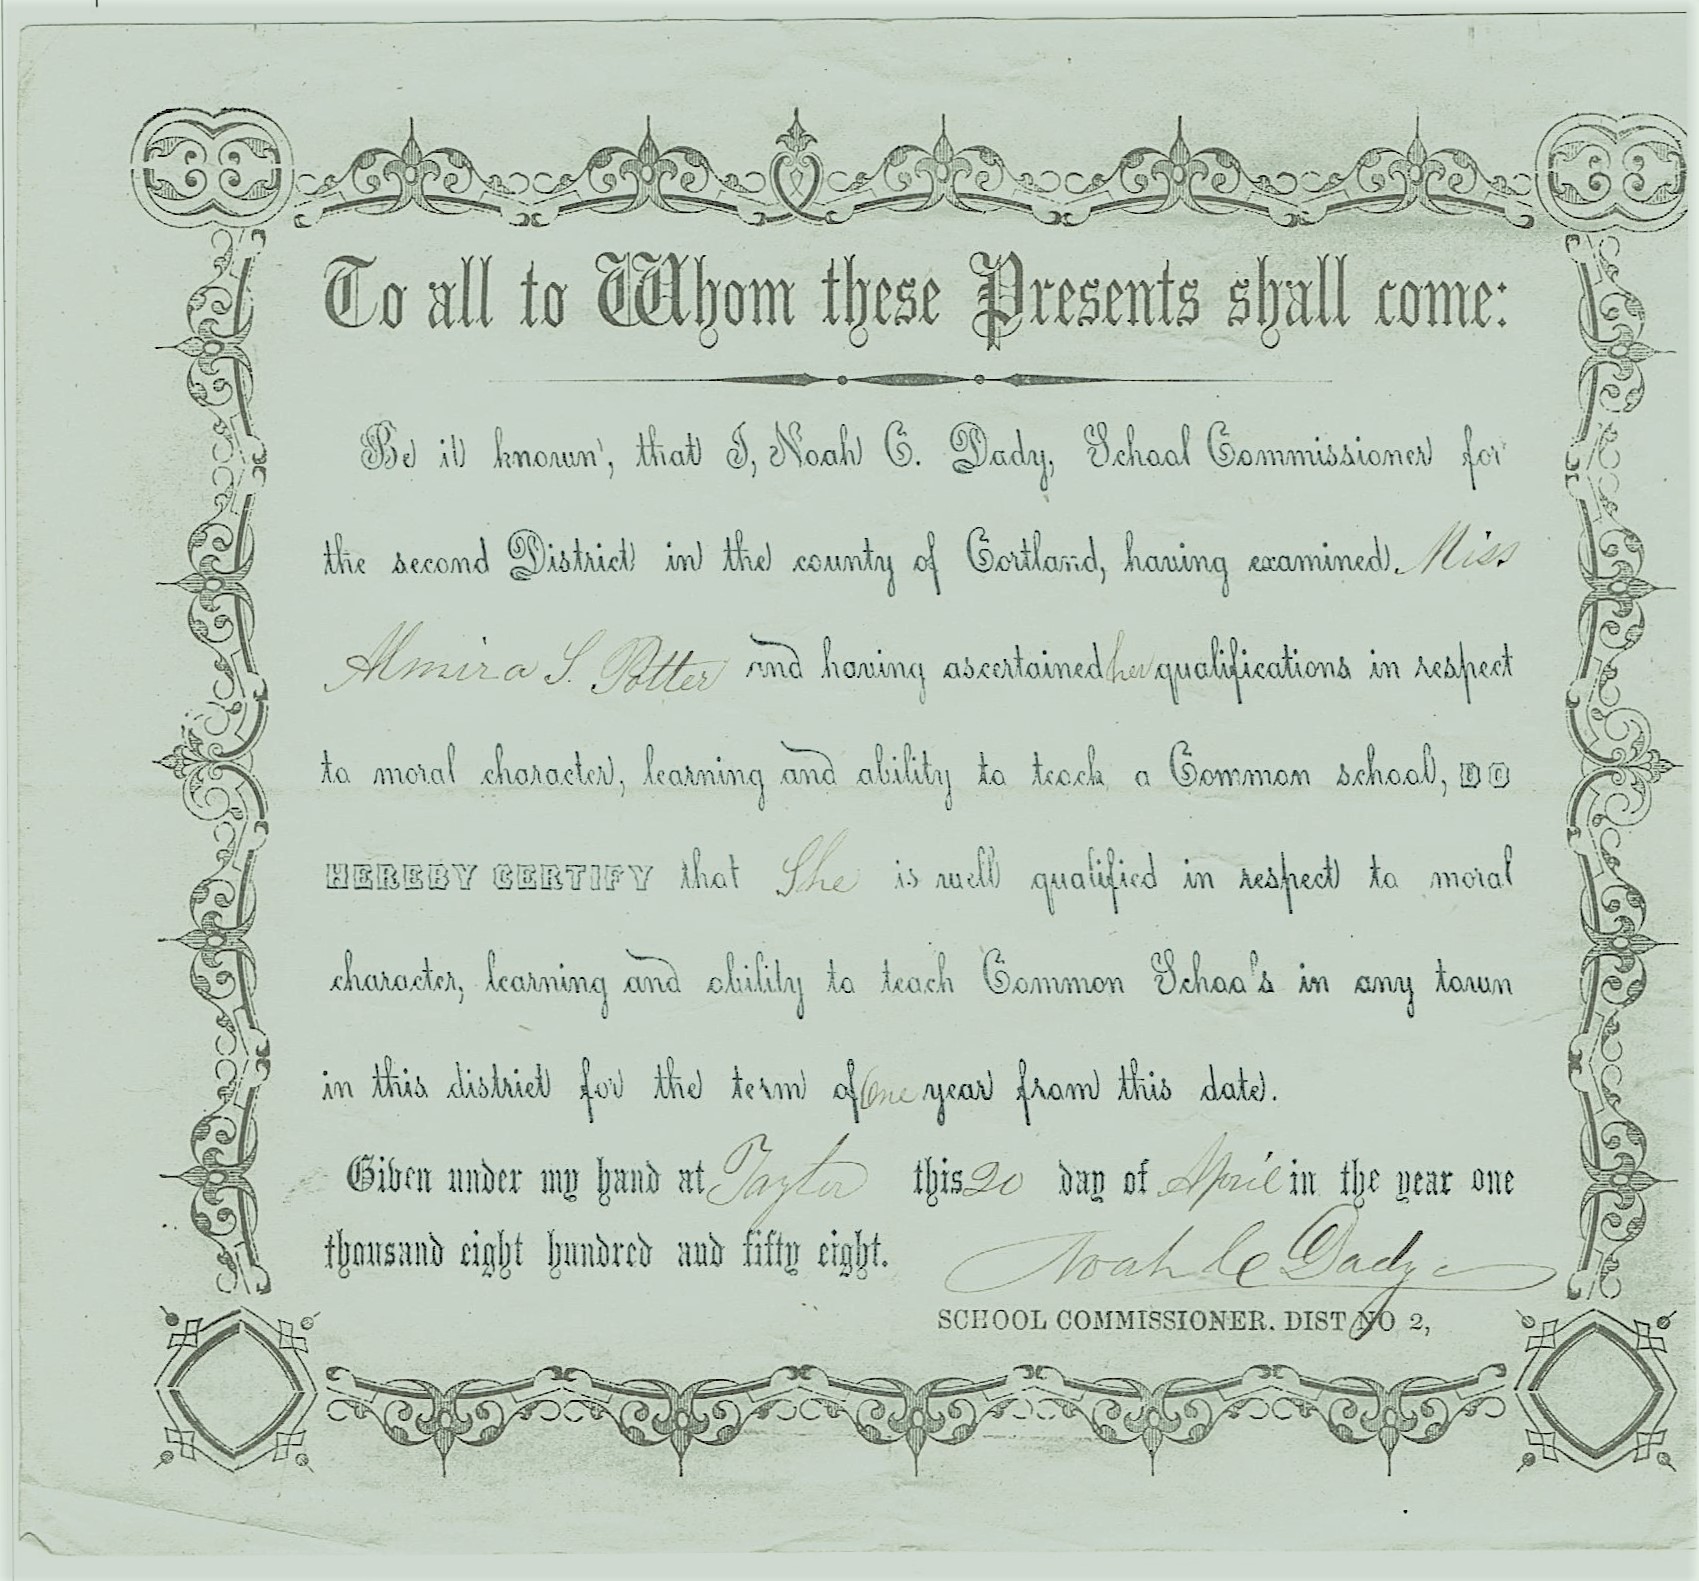 To all to Whom these Presents shall come:
Be it known, that I, Noah C. Dady, School Commissioner for
the second District in the county of Cortland, having examined Miss
Almira S. Potter and having ascertained her qualifications in respect
to moral character, learning and ability to teach a Common school, DO
HEREBY CERTIFY that She is well qualified in respect to moral
character, learning and ability to teach Common Schools in any town
in this district for the term of One year from this date.
Given under my hand at Taylor this 20 day of April in the year one
thousand eight hundred and fifty eight.
Noah C Dady
SCHOOL COMMISSIONER. DIST NO 2,